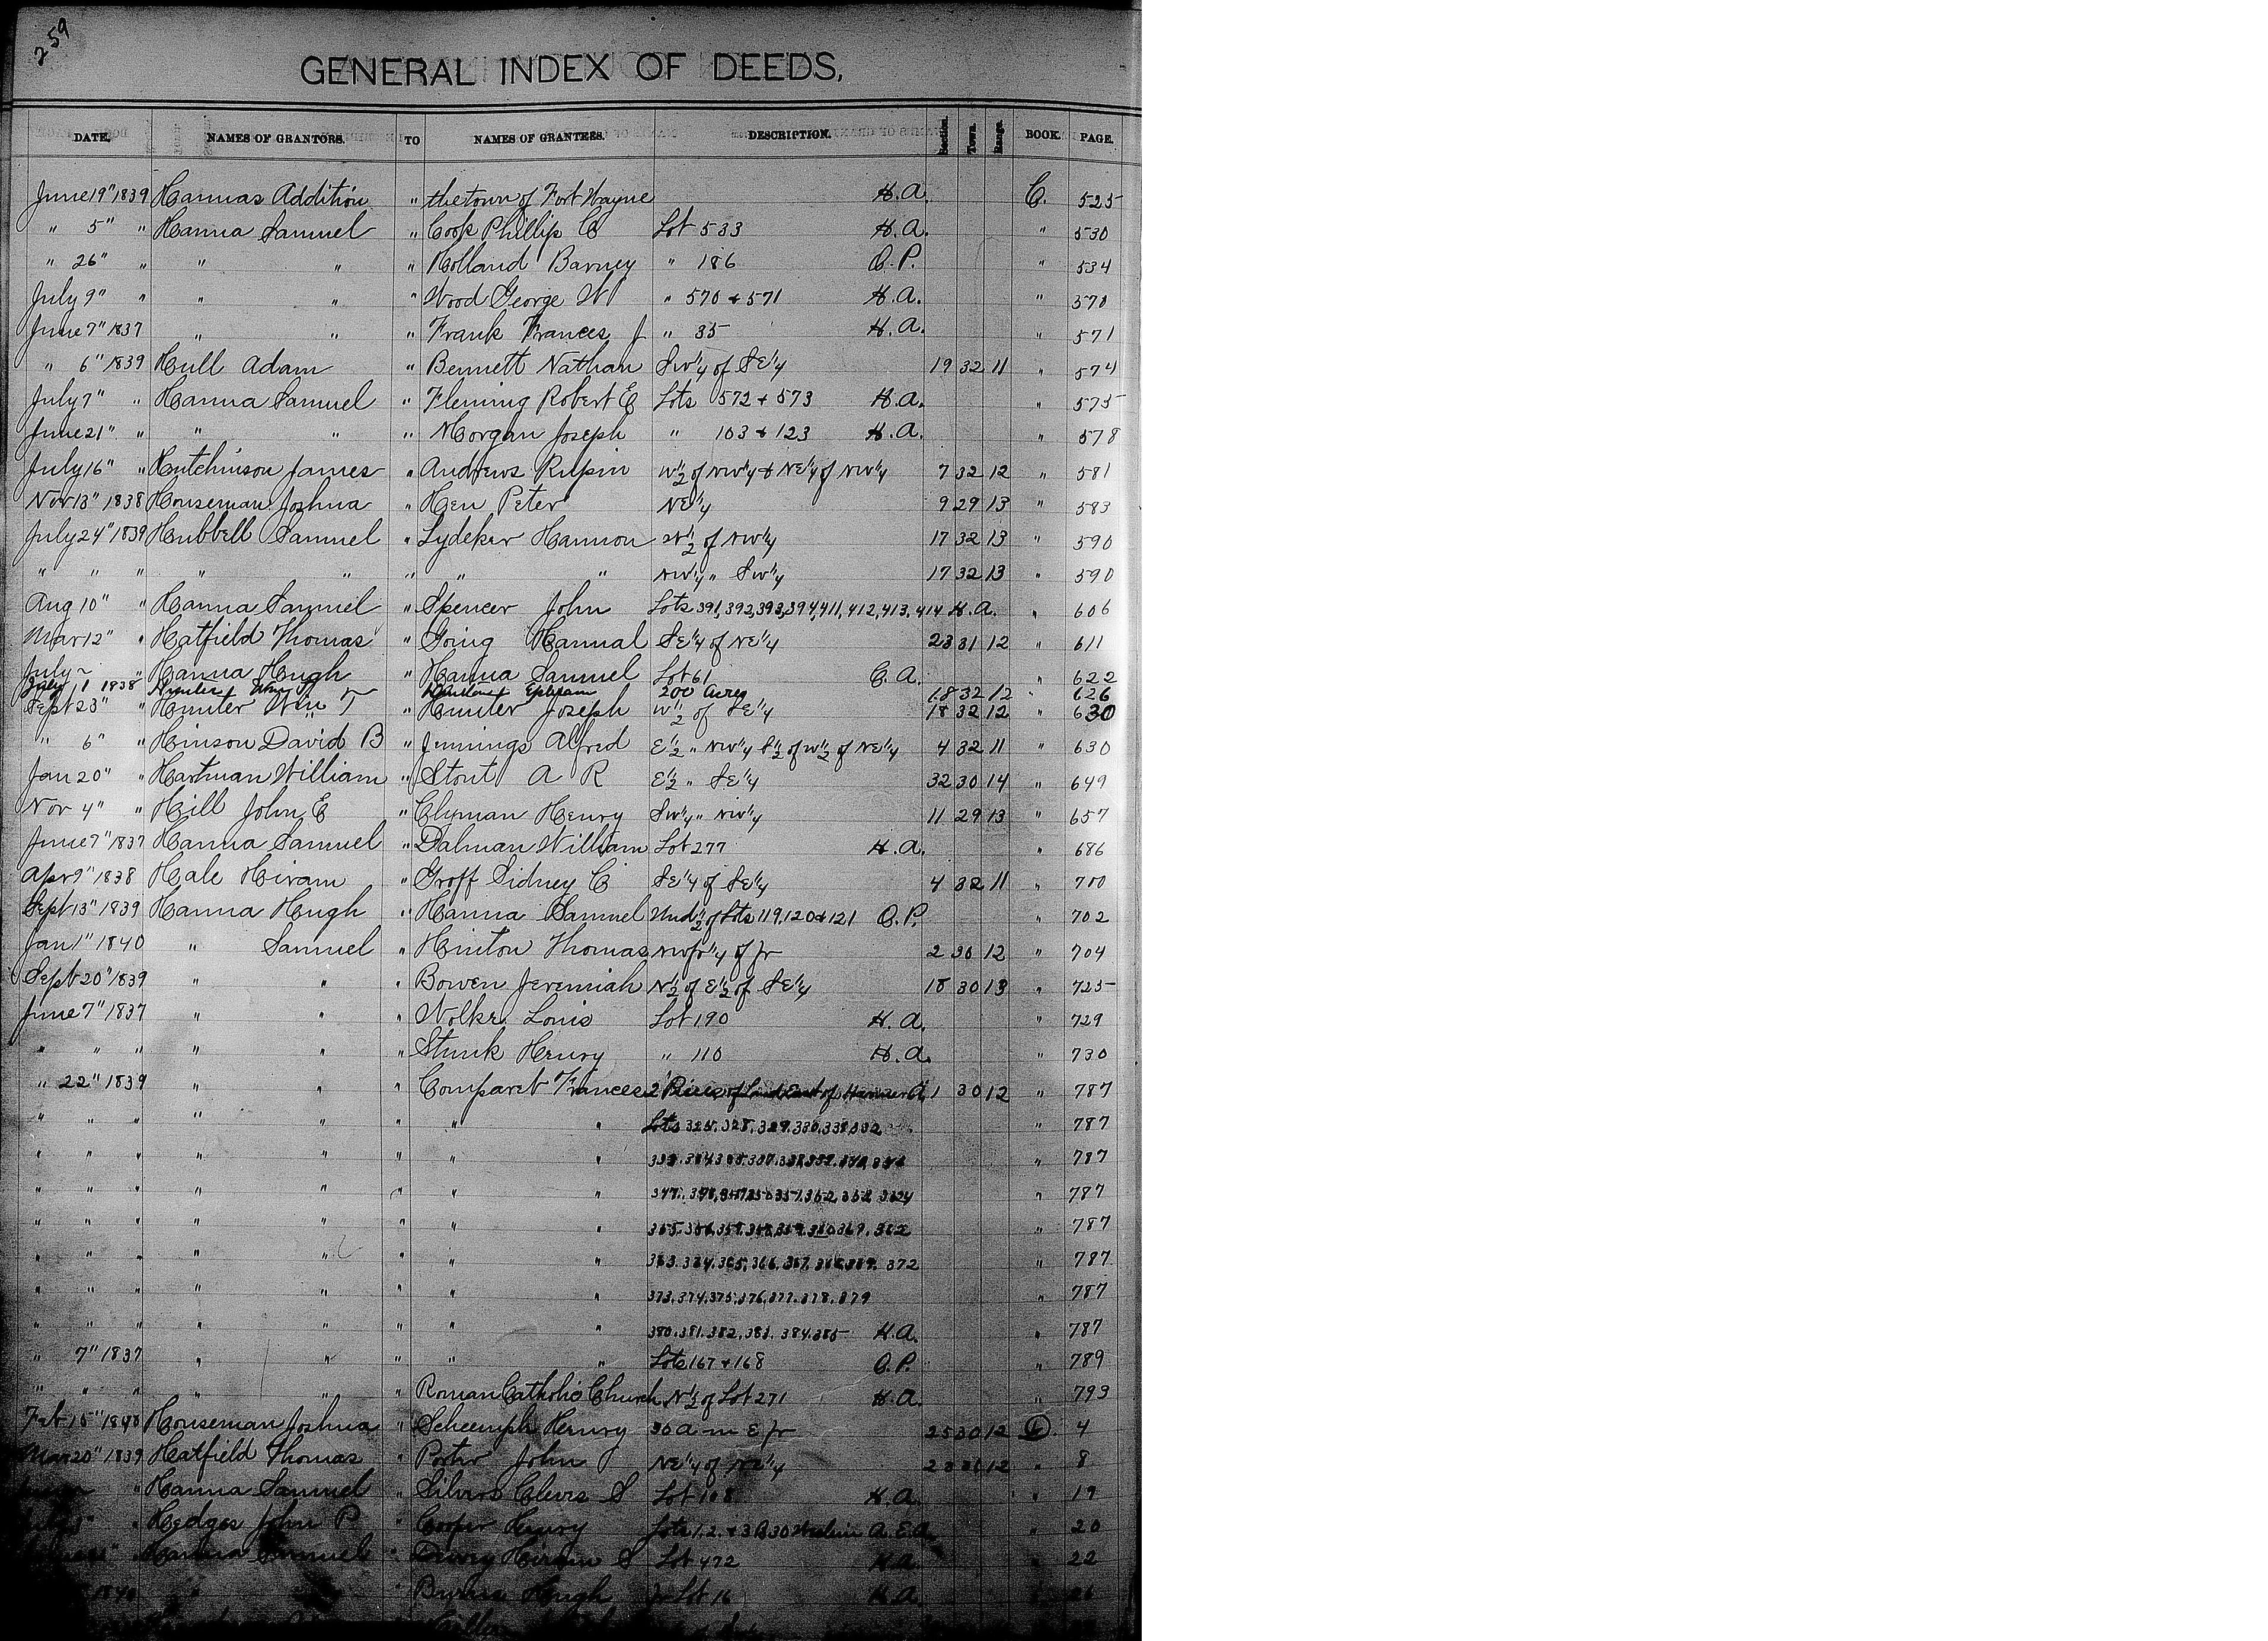 259
GENERAL INDEX OF DEEDS.
DATE. NAMES OF GRANTORS. TO NAMES OF GRANTEES. DESCRIPTION. Section. Town. Range. BOOK. PAGE.
June 19" 1839 Hannas Addition " the town of Fort Wayne H.A. C. 525
" 5" " Hanna Samuel " Cook Phillip C Lot 533 H.A. " 530
" 26" " " " " Holland Barney " 186 O.P. " 534
July 9" " " " " Wood George W " 570 + 571 H.A. " 570
June 7" 1837 " " " Frank Frances J " 35 H.A. " 571
" 6" 1839 Hull Adam " Bennett Nathan SW1/4 of SE1/4 19 32 11 " 574
July 7" " Hanna Samuel " Fleming Robert E Lots 572 + 573 H.A. " 575
June 21" " " " " Morgan Joseph " 103 + 123 H.A. " 578
July 16" " Hutchinson James " Andrews Rufin W1/2 of NW1/4 + NE1/4 of NW1/4 7 32 12 " 581
Nov 13" 1838 Houseman Joshua " Hen Peter NE1/4 9 29 13 " 583
July 24" 1839 Hubbell Samuel " Lydeker Hannon N1/2 of NW1/4 17 32 13 " 590
" " " " " " " " NW1/4 " SW1/4 17 32 13 " 590
Aug 10" " Hanna Samuel " Spencer John Lots 391, 392, 393, 394, 411, 412, 413, 414 H.A. " 606
Mar 12" " Hatfield Thomas " Going Hannal SE1/4 of NE1/4 23 31 12 " 611
July ~ " Hanna Hugh " Hanna Samuel Lot 61 C.A. " 622
July 11 1838 Hunter Wm T Ephraim 200 Acres 18 32 12 " 626
Sept 23" " Hunter Wm T " Hunter Joseph W1/2 of SE1/4 18 32 12 " 630
" 6" " Hinson David B " Jennings Alfred E1/2 " NW1/4 S1/2 of W1/2 of NE1/4 4 32 11 " 630
Jan 20" " Hartman William " Stout A R E1/2 " SE1/4 32 30 14 " 649
Nov 4" " Hill John E " Clyman Henry SW1/4 " NW1/4 11 29 13 " 657
June 7" 1837 Hanna Samuel " Dalman William Lot 277 H.A. " 686
Apr 9" 1838 Hale Hiram " Groff Sidney C SE1/4 of SE1/4 4 32 11 " 700
Sept 13" 1839 Hanna Hugh " Hanna Samuel Und 1/2 of Lots 119, 120 + 121 O.P. " 702
Jan 1" 1840 " Samuel " Hinton Thomas NW fr 1/4 of fr 2 30 12 " 704
Sept 20" 1839 " " " Bowen Jeremiah N1/2 of E1/2 of SE1/4 18 30 13 " 725
June 7" 1837 " " " Wolke Louis Lot 190 H.A. " 729
" " " " " " Stunk Henry " 110 H.A. " 730
" 22" 1839 " " " Comparet Frances 2 Pieces of Land East of Hannas A. 1 30 12 " 787
" " " " " " " " Lots " 787
" " " " " " " " " 787
" " " " " " " " " 787
" " " " " " " " " 787
" " " " " " " " 372 " 787
" " " " " " " " 373, 374, 375, 376, 377, 378, 379 " 787
" " " " " " " " 380, 381, 382, 383, 384, 385 H.A. " 787
" 7" 1837 " " " " " Lots 167 + 168 O.P. " 789
" " " " " " Roman Catholic Church N1/2 of Lot 271 H.A. " 793
Feb 15" 1840 Houseman Joshua " Henry 30 a m E fr 25 30 12 D. 4
Mar 20" 1839 Hatfield Thomas " Porter John NE1/4 of NE1/4 12 " 8
" Hanna Samuel " Silvers Clevis S Lot 108 H.A. " 19
Hedges John P " Cooper Henry Lots 1, 2, + 3 B 30 A. E.A. " 20
Hanna Samuel " Hiram S Lot 472 H.A. " 22
1840 " " Hugh Lot 16 H.A.